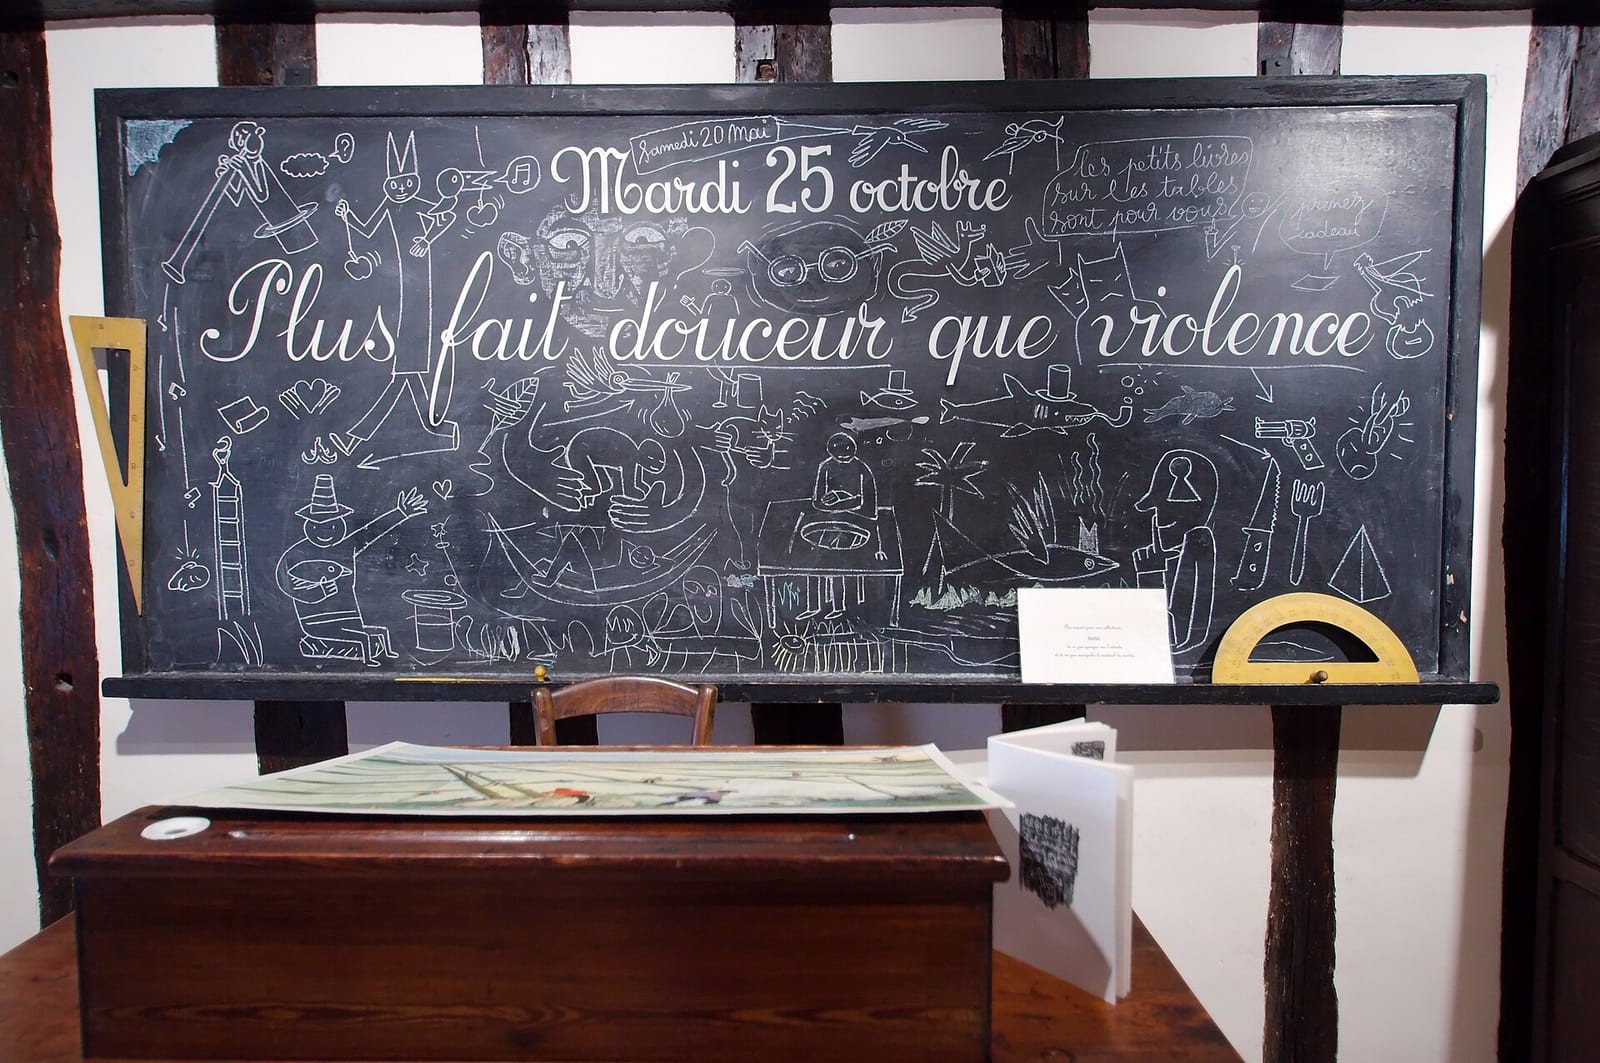 Samedi 20 Mai
Mardi 25 octobre
les petits livres
sur les tables
sont pour vous
prenez
cadeau
Plus fait douceur que violence